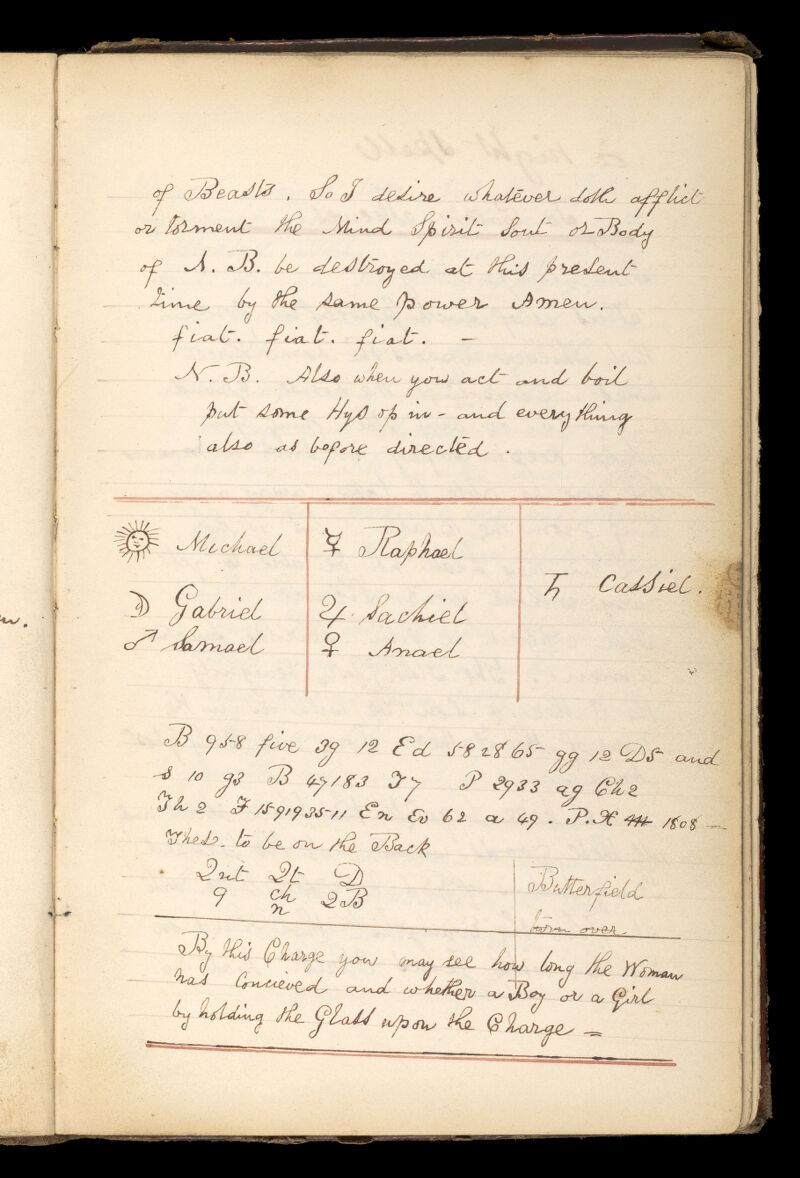 of Beasts. So I desire whatever doth afflict
or torment the Mind Spirit Soul or Body
of N. B. be destroyed at this present
time by the same power Amen.
fiat. fiat. fiat. -
N. B. Also when you act and boil
put some Hysop in - and everything
also as before directed.
☉ Michael
☽ Gabriel
♂ Samael
☿ Raphael
♃ Sachiel
♀ Anael
♄ Cassiel.
B 958 five 3g 12 Ed 582865 gg 12 D5 and
s 10 g3 B 47183 I7 P 2933 ag Ch2
Th 2 F 1591935-11 En Ev 62 a 49. P. X 1808 -
Thes. to be on the Back
2nt 2t D
9 ch 2B
n
Butterfield
turn over
By this Charge you may see how long the Woman
has Concieved and whether a Boy or a Girl
by holding the Glass upon the Charge =
n.